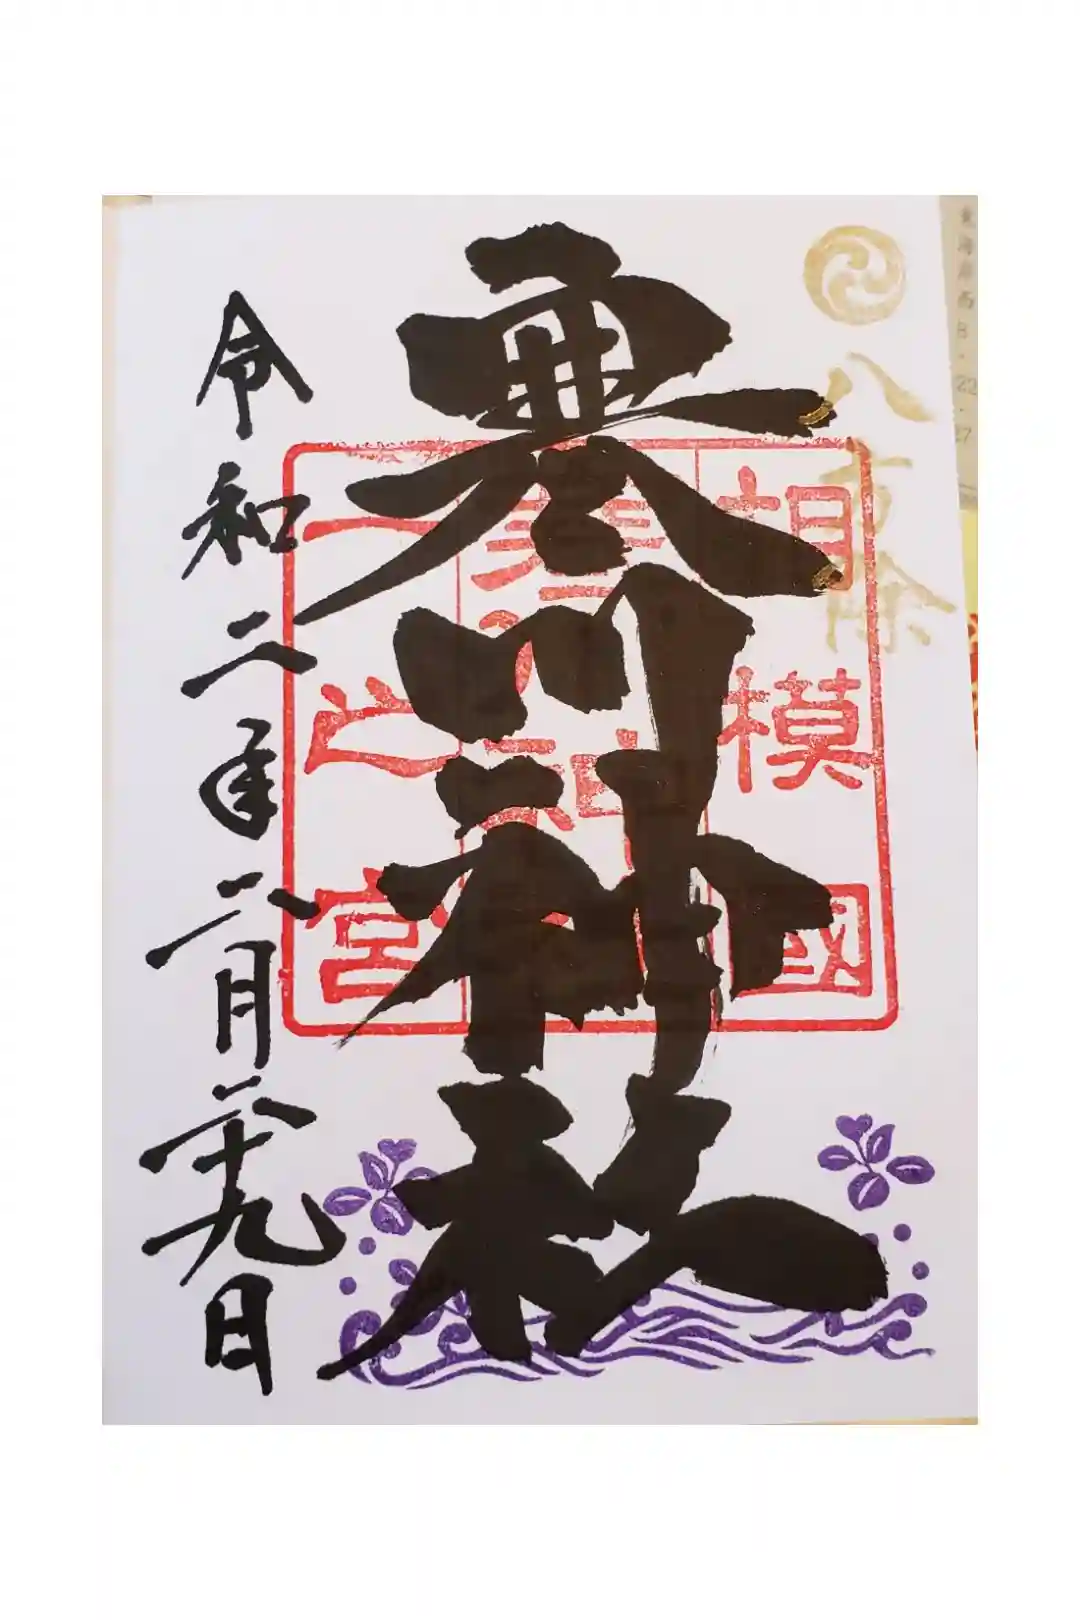 八方除
寒川神社
相模國
一之宮
令和二年二月二十九日